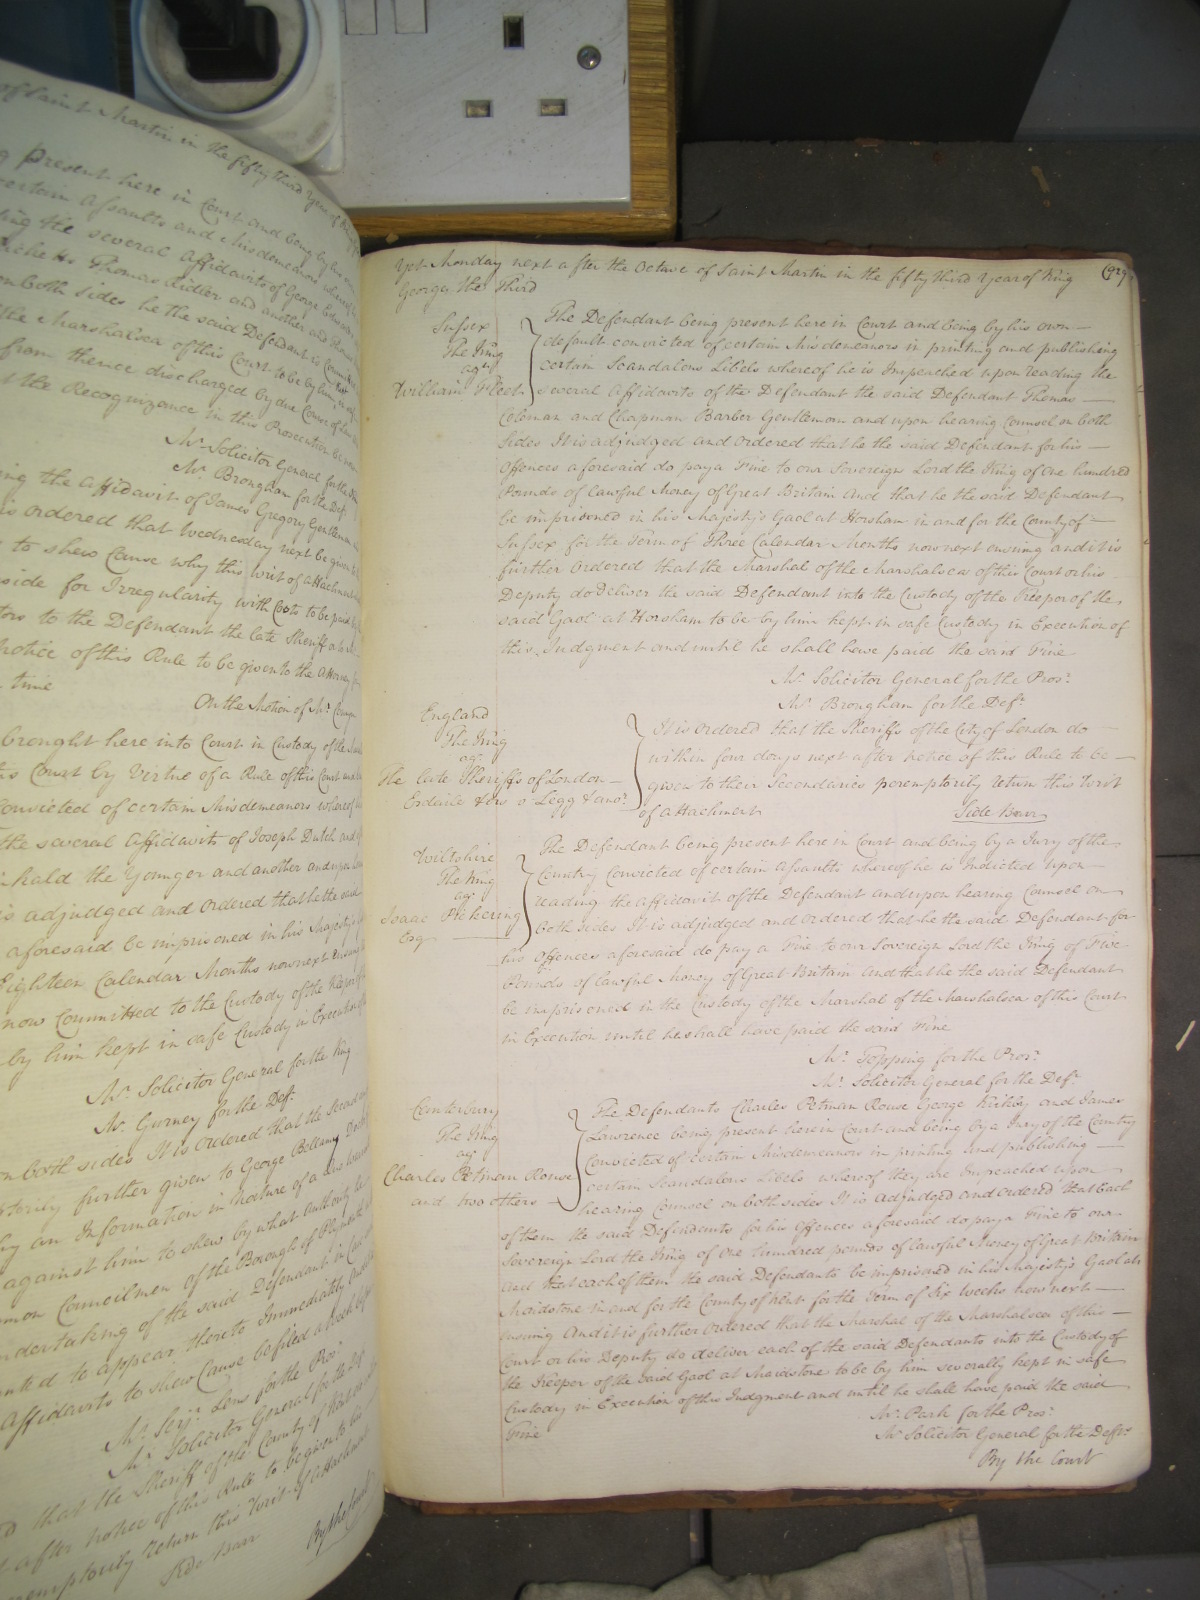 of Saint Martin in the fifty third Year of King
present here in Court and being by his own
certain Assaults and Misdemeanors whereof he
the several Affidavits of George
Thomas Lidler and another and
on both sides he the said Defendant is
the Marshalsea of this Court to be by him
from thence discharged by due Course of
the Recognizance in this Prosecution be
Mr. Solicitor General for the
Mr. Brougham for the Def.
the Affidavit of James Gregory Gentleman
is ordered that Wednesday next be given
to shew Cause why this writ of Attachment
side for Irregularity with Costs to be paid
to the Defendant the late Sheriff
notice of this Rule to be given to the Attorney
time
On the Motion of Mr.
brought here into Court in Custody of the
Court by Virtue of a Rule of this Court
Convicted of certain Misdemeanors whereof
the several Affidavits of Joseph Dutch and
the Younger and another and upon
is adjudged and ordered that he the said
aforesaid be imprisoned in his Majesty's
Eighteen Calendar Months now next
now Committed to the Custody of the Keeper
by him kept in safe Custody in Execution of
Mr. Solicitor General for the King
Mr. Gurney for the Def.
on both sides It is ordered that the Second
further given to George Bellamy
an Information in Nature of a
against him to shew by what Authority
Common Councilmen of the Borough of
undertaking of the said Defendant
to appear thereto Immediately
Affidavits to shew Cause be filed a Week
Mr. Serjt. Lens for the Pros.
Mr. Solicitor General for the Def.
that the Sheriff of the County of
after notice of this Rule to be given to
peremptorily return this Writ of Attachment
Side Barr
By the Court
Yet Monday next after the Octave of Saint Martin in the fifty third Year of King
George the Third
Sussex
The King
agt
William Fleet
The Defendant being present here in Court and being by his own
default convicted of certain Misdemeanors in printing and publishing
certain Scandalous Libels whereof he is Impeached upon reading the
several Affidavits of the Defendant the said Defendant Thomas
Coleman and Chapman Barber Gentleman and upon hearing Counsel on both
sides It is adjudged and ordered that he the said Defendant for his
Offences aforesaid do pay a Fine to our Sovereign Lord the King of One hundred
Pounds of lawful Money of Great Britain And that he the said Defendant
be imprisoned in his Majesty's Gaol at Horsham in and for the County of
Sussex for the Term of Three Calendar Months now next ensuing and it is
further Ordered that the Marshal of the Marshalsea of this Court or his
Deputy do deliver the said Defendant into the Custody of the Keeper of the
said Gaol at Horsham to be by him kept in safe Custody in Execution of
this Judgment and until he shall have paid the said Fine
Mr. Solicitor General for the Pros:
Mr. Brougham for the Def.
England
The King
agt
The late Sheriffs of London
Erdaile & ors v Legg & anor.
It is Ordered that the Sheriffs of the City of London do
within four days next after notice of this Rule to be
given to their Secondaries peremptorily return this Writ
of Attachment
Side Barr
Wiltshire
The King
agt
Isaac Pickering
Esq
The Defendant being present here in Court and being by a Jury of the
Country Convicted of certain Assaults whereof he is Indicted upon
reading the Affidavit of the Defendant and upon hearing Counsel on
both sides It is adjudged and ordered that he the said Defendant for
his Offences aforesaid do pay a Fine to our Sovereign Lord the King of Five
Pounds of lawful Money of Great Britain And that he the said Defendant
be imprisoned in the Custody of the Marshal of the Marshalsea of this Court
in Execution until he shall have paid the said Fine
Mr. Topping for the Pros:
Mr. Solicitor General for the Def.
Canterbury
The King
agt
Charles Petman Rouse
and two others
The Defendants Charles Petman Rouse George Kirkby and James
Lawrence being present here in Court and being by a Jury of the Country
Convicted of certain Misdemeanors in printing and publishing
certain Scandalous Libels whereof they are Impeached upon
hearing Counsel on both sides It is adjudged and ordered that Each
of them the said Defendants for his Offences aforesaid do pay a Fine to our
Sovereign Lord the King of One hundred pounds of lawful Money of Great Britain
And that each of them the said Defendants be imprisoned in his Majesty's Gaol at
Maidstone in and for the County of Kent for the Term of Six Weeks now next
ensuing And it is further ordered that the Marshal of the Marshalsea of this
Court or his Deputy do deliver each of the said Defendants into the Custody of
the Keeper of the said Gaol at Maidstone to be by him severally kept in safe
Custody in Execution of this Judgment and until he shall have paid the said
Fine
Mr. Park for the Pros:
Mr. Solicitor General for the Defts.
By the Court